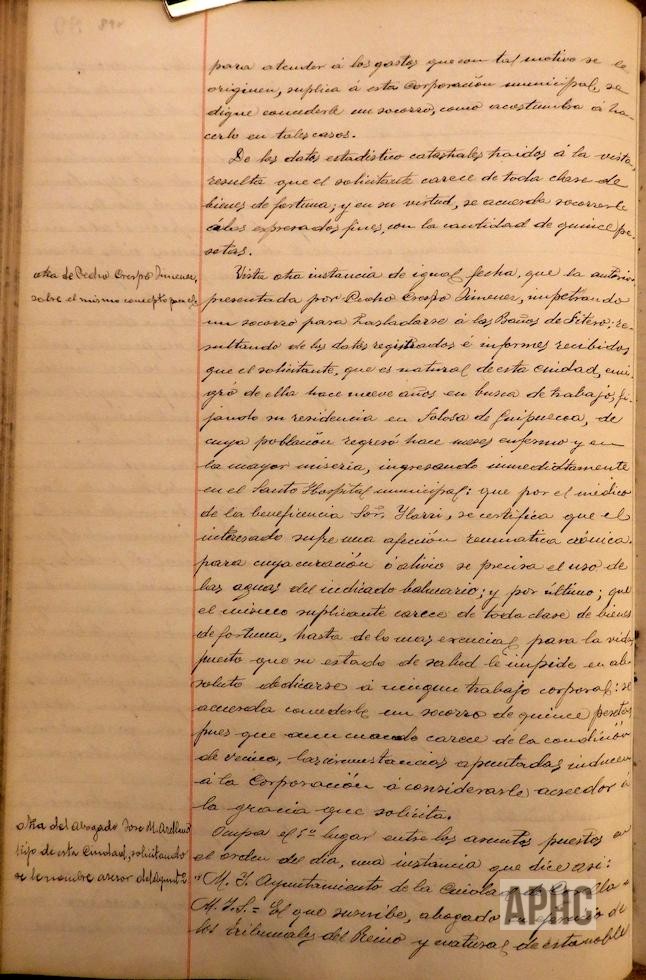 para atender á los gastos que con tal motivo se le
originen, suplica á esta Corporación municipal, se
digne concederle un socorro, como acostumbra á ha-
cerlo en tales casos.
De los datos estadistico catastrales traidos á la vista,
resulta que el solicitante carece de toda clase de
bienes de fortuna; y en su virtud, se acuerda socorrerle
á los expresados fines, con la cantidad de quince pe-
setas.
otra de Pedro Crespo Jimenez,
sobre el mismo concepto que el
Vista otra instancia de igual fecha, que la anterior
presentada por Pedro Crespo Jimenez, impetrando
un socorro para trasladarse á los Baños de Fitero: re-
sultando de los datos registrados é informes recibidos
que el solicitante, que es natural de esta Ciudad, emi-
gró de ella hace nueve años en busca de trabajo, fi-
jando su residencia en Tolosa de Guipuzcoa, de
cuya población regresó hace meses enfermo y en
la mayor miseria, ingresando inmediatamente
en el Santo Hospital municipal: que por el médico
de la beneficencia Sor. Ylarri, se certifica que el
interesado sufre una afección reumatica crónica
para cuya curación ó alivio se precisa el uso de
las aguas del indicado balneario; y por último; que
el mismo suplicante carece de toda clase de bienes
de fortuna, hasta de lo mas exencial para la vida,
puesto que su estado de salud le impide en ab-
soluto dedicarse á ningun trabajo corporal: se
acuerda concederle un socorro de quince pesetas
pues que aun cuando carece de la condición
de vecino, las circunstancias apuntadas inducen
á la Corporación á considerarle acreedor á
la gracia que solicita.
otra del abogado Jose M. Arellano
hijo de esta Ciudad, solicitando
se le nombre asesor del Ayunt.
Ocupa el 5º lugar entre los asuntos puestos en
el orden del dia, una instancia que dice asi:
"M. Y. Ayuntamiento de la Ciudad
M.Y.S.= El que suscribe, abogado en ejercicio de
los tribunales del Reino y natural de esta noble
APHC